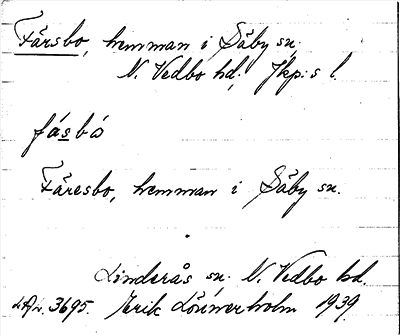 Fårsbo, hemman i Säby sn.
N. Vedbo hd, Jkp:s l.
fåsbo
Fåresbo, hemman i Säby sn.
Linderås sn. N. Vedbo hd.
3695. Erik Lönnerholm 1939